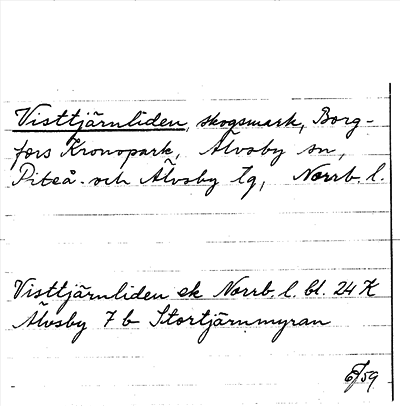 Visttjärnliden, skogsmark, Borg-
fors Kronopark, Älvsby sn,
Piteå och Älvsby tg, Norrb. l.
Visttjärnliden ek Norrb. l. bl. 24 K
Älvsby 7 b Stortjärnmyran
6/59